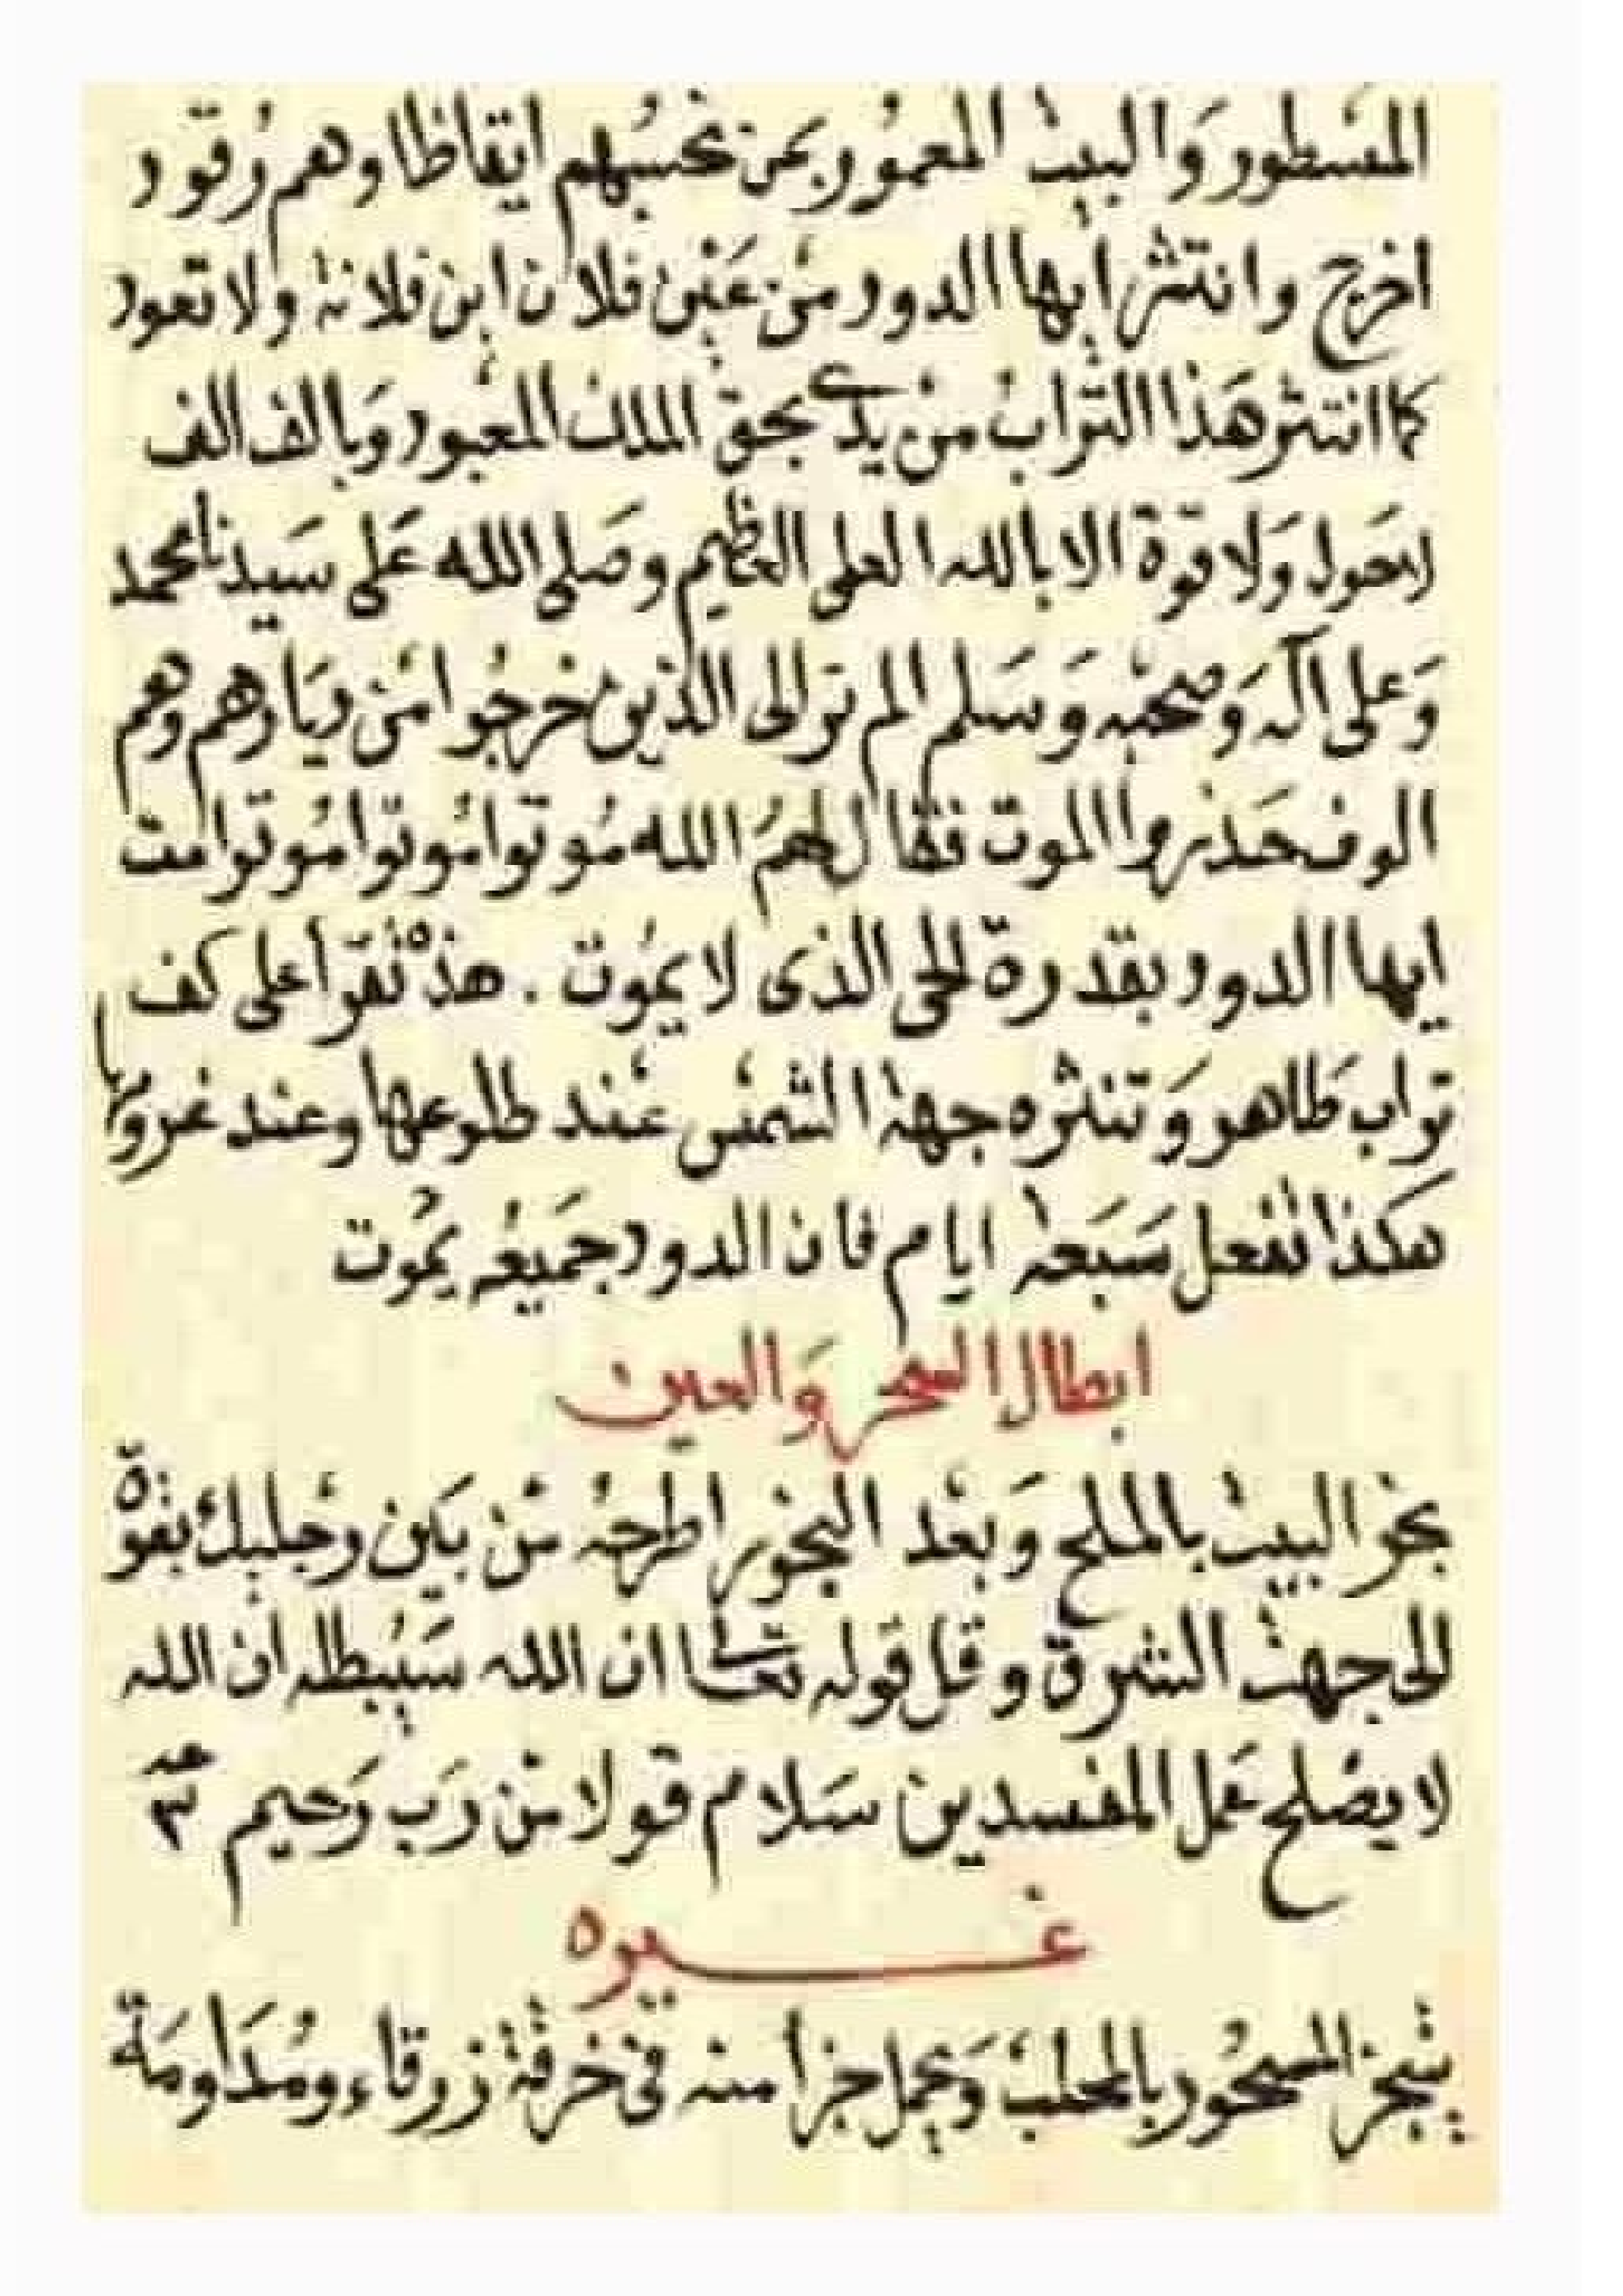 المسطور وَالبيت المعمُور بمَن تحسبُهم ايقاظا وهم رُقود
اخرج وانتثر ايها الدود من عَيْن فلان ابن فلانة ولا تعود
كما انتثر هَذا التراب من يدي بحق الملك المعبود وَبالف الف
لاحَول وَلا قوة الا بالله العلى العظيم وصَلى الله عَلى سَيدنا محمد
وَعلى اله وَصحبه وَسَلم الم تر الى الذين خرجُوا من ديَارهم وهم
الوف حَذر الموت فقال لهمُ الله مُوتوا مُوتوا مُوتوا مت
ايها الدود بقدرة الحى الذى لا يمُوت . هذه تقرأ على كف
تراب طَاهر وَتنثره جهة الشمس عند طلوعها وعند غروبها
هكذا تفعل سَبَعة ايام فان الدود جَميعُه يمُوت
ابطال السحر وَالعين
بخر البيت بالملح وَبعد البخور اطرحه من بَين رجليك بقوة
الى جهة الشرق وقل قوله تعالى ان الله سَيُبطله ان الله
لا يصلح عَمل المفسدين سَلام قولا من رَب رَحيم ٣
غـيره
يتبخر المسحُور بالمحلب وَيحمل جزأ منه فى خرقة زرقاء ومُدَاومَة